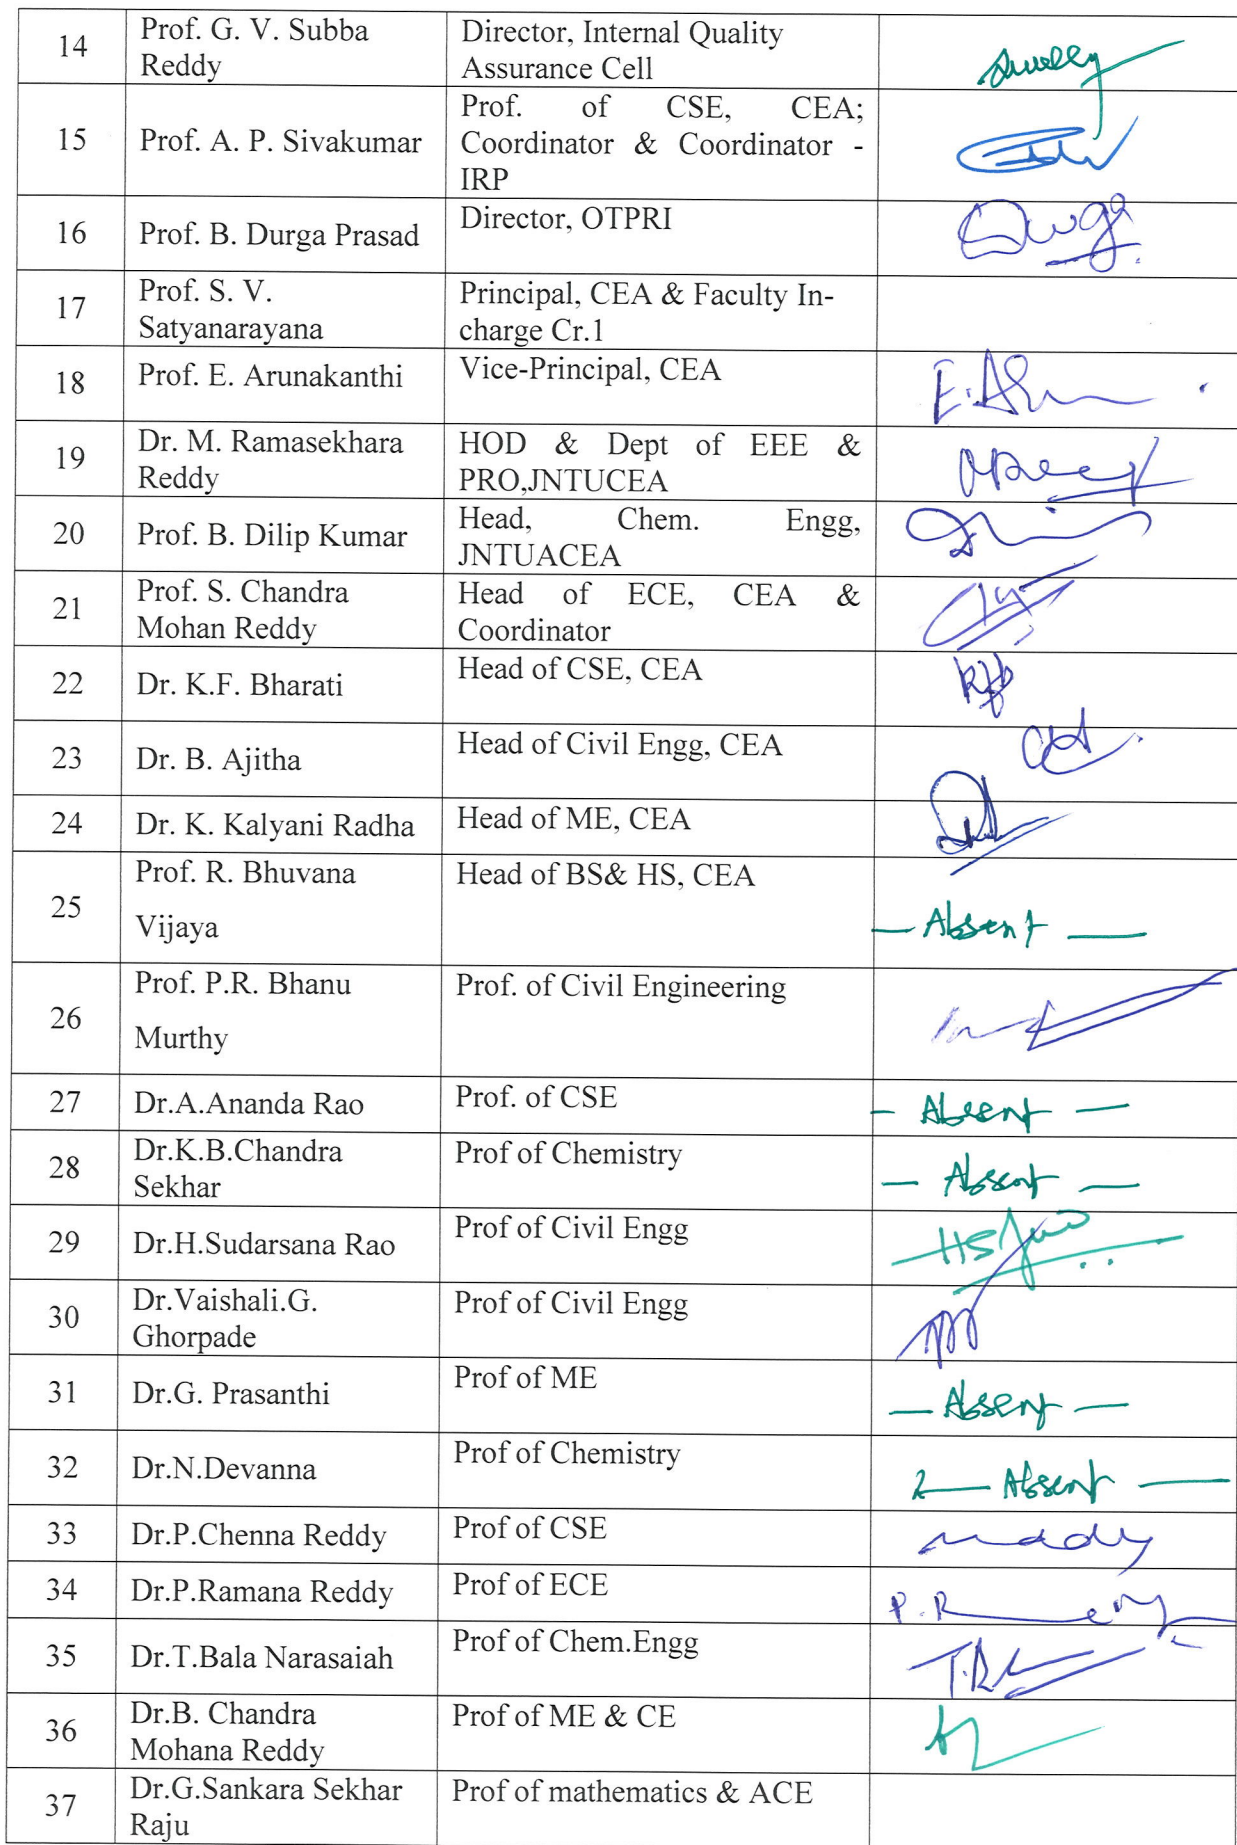 14
Prof. G. V. Subba
Reddy
Director, Internal Quality
Assurance Cell
15
Prof. A. P. Sivakumar
Prof. of CSE, CEA;
Coordinator & Coordinator -
IRP
16
Prof. B. Durga Prasad
Director, OTPRI
17
Prof. S. V.
Satyanarayana
Principal, CEA & Faculty In-
charge Cr.1
18
Prof. E. Arunakanthi
Vice-Principal, CEA
19
Dr. M. Ramasekhara
Reddy
HOD & Dept of EEE &
PRO,JNTUCEA
20
Prof. B. Dilip Kumar
Head, Chem. Engg,
JNTUACEA
21
Prof. S. Chandra
Mohan Reddy
Head of ECE, CEA &
Coordinator
22
Dr. K.F. Bharati
Head of CSE, CEA
23
Dr. B. Ajitha
Head of Civil Engg, CEA
24
Dr. K. Kalyani Radha
Head of ME, CEA
25
Prof. R. Bhuvana
Vijaya
Head of BS& HS, CEA
— Absent —
26
Prof. P.R. Bhanu
Murthy
Prof. of Civil Engineering
27
Dr.A.Ananda Rao
Prof. of CSE
- Absent —
28
Dr.K.B.Chandra
Sekhar
Prof of Chemistry
— Absent —
29
Dr.H.Sudarsana Rao
Prof of Civil Engg
30
Dr.Vaishali.G.
Ghorpade
Prof of Civil Engg
31
Dr.G. Prasanthi
Prof of ME
— Absent —
32
Dr.N.Devanna
Prof of Chemistry
— Absent —
33
Dr.P.Chenna Reddy
Prof of CSE
34
Dr.P.Ramana Reddy
Prof of ECE
35
Dr.T.Bala Narasaiah
Prof of Chem.Engg
36
Dr.B. Chandra
Mohana Reddy
Prof of ME & CE
37
Dr.G.Sankara Sekhar
Raju
Prof of mathematics & ACE